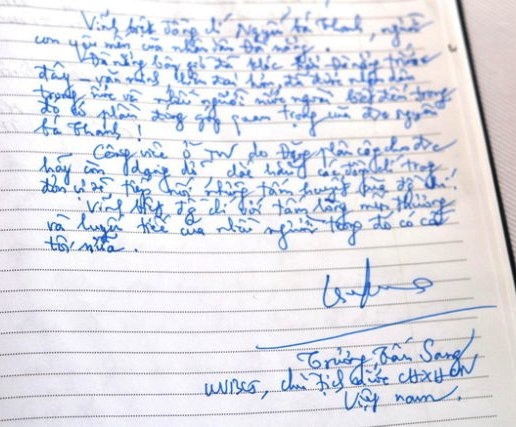 Vĩnh biệt đồng chí Nguyễn Bá Thanh, người
con yêu mến của nhân dân Đà Nẵng.
Đà Nẵng bây giờ đã khác Đà Nẵng trước
đây – văn minh hiện đại hơn đã được nhân dân
trong nước và nhiều người nước ngoài biết đến trong
đó có phần đóng góp quan trọng của đ/c Nguyễn
Bá Thanh!
Công việc ở TW do Đảng phân công cho đ/c
hãy còn dang dở chắc rằng các đồng chí trong
đơn vị sẽ tiếp nối những tâm huyết của đ/chí.
Vĩnh biệt đ/chí với tấm lòng mến thương
và luyến tiếc của nhiều người trong đó có cả
tôi nữa.
Trương Tấn Sang
UVBCT, chủ tịch nước CHXHCN
Việt Nam.